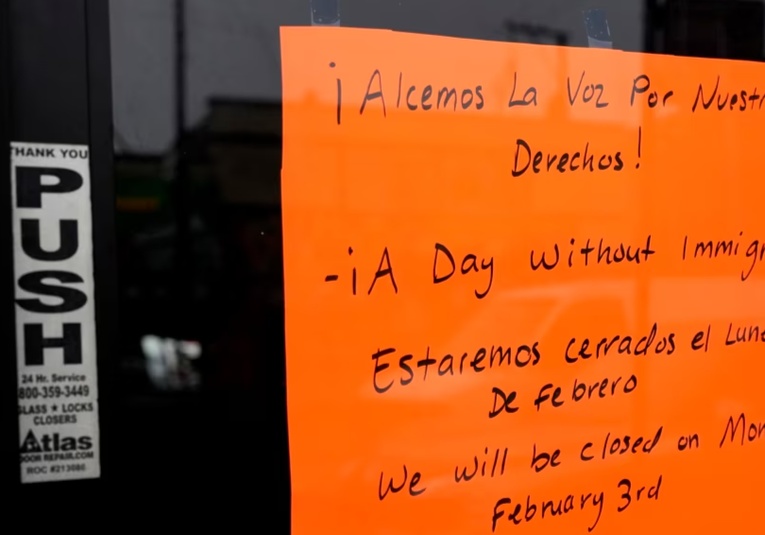 ¡Alcemos La Voz Por Nuestr
Derechos!
-¡A Day without Immigr
Estaremos cerrados el Lun
De febrero
We will be closed on Mon
February 3rd
THANK YOU
PUSH
24 Hr. Service
800-359-3449
GLASS ★ LOCKS
CLOSERS
Atlas
DOOR REPAIR.COM
ROC #213086